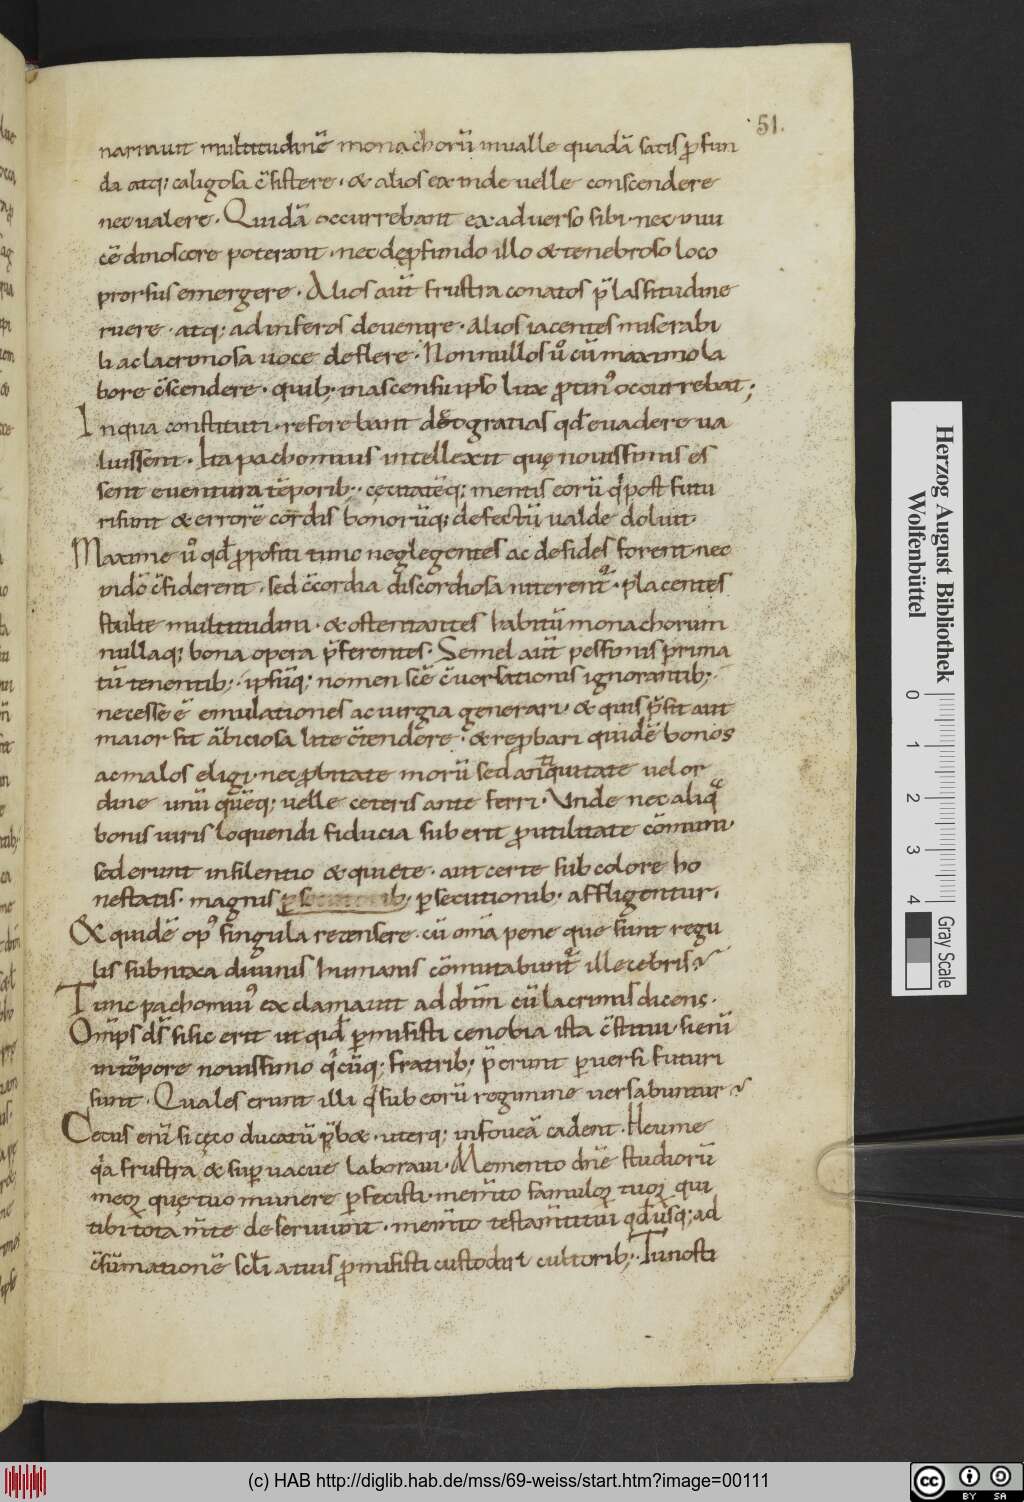 51.
narrauit multitudinē monachorū inualle quadā satis ꝓfun
da atq; caligosa c̄sistere · & alios ex inde uelle conscendere
nec ualere · Quidā occurrebant ex aduerso sibi · nec inui
cē dinoscere poterant · nec dep̱fundo illo & tenebroso loco
prorsus emergere · Alios aūt frustra conatos p̄ lassitudine
ruere · atq; ad inferos deuenire · Alios iacentes miserabi
li ac lacrimosa uoce deflere · Nonnullos uͦ cū maximo la
bore c̄scendere · quib; inascensu ipso lux ꝓtin᾽ occurrebat;
In qua constituti · referebant deo gratias qđ euadere ua
luissent · Ita pachomius intellexit quę nouissimis es
sent euentura tēporib; · cęcitatēq; mentis eorū q̇ post futu
ri sunt & errorē cordis bonorūq; defectū ualde doluit ·
Maxime uͦ qđ ꝓpositi tunc neglegentes ac desides forent · nec
in dō c̄fiderent · sed c̄cordia discordiosa niterent᾽ · placentes
stulte multitudini · & ostentantes habitū monachorum
nullaq; bona opera p̄ferentes · Semel aūt pessimis prima
tū tenentib; · ipsūq; nomen scē c̄uersationis ignorantib; ·
necesse ē emulationes ac iurgia generari · & quis p̄sit aut
maior sit ābiciosa lite c̄tendere · & reꝓbari quidē bonos
ac malos eligi · nec ꝓbitate morū sed antiquitate uel or
dine unū quēq; uelle ceteris ante ferri · Unde nec aliq̄
bonis uiris loquendi fiducia suberit ꝓ utilitate cōmuni ·
sed erunt in silentio & quiete · aut certe sub colore ho
nestatis · magnis ꝑsecutionib; ꝑsecutionib· affligentur ·
Et quidē op᾽ singula recensere · cū om̄ia pene que sunt regu
lis subnixa diuinis humanis cōmutabunt᾽ illecebris?
Tunc pachomiu᾽ exclamauit ad dn̄m cū lacrimis dicens ·
Om̄ps ds̄ si sic erit ut qid ꝑmisisti cenobia ista c̄stitui · si enī
in tēpore nouissimo q̇cūq; fratrib; p̄erunt ꝑuersi futuri
sunt · Quales erunt illi q̇ sub eorū regimine uersabuntur?
Cecus enī si cęco ducatū p̄b& · uterq; in foueā cadent · Heu me
q̇a frustra & suꝑuacue laboraui · Memento dn̄e studiorū
meoꝝ quę tuo munere ꝑfecisti · mem̄to famuloꝝ tuoꝝ qui
tibi tota m̄te deseruiunt · mem̄to testam̄ti tui qđ usq; ad
c̄sūmationē scl̄i a tuis ꝓmisisti custodiri cultorib; · Tu nosti
Herzog August Bibliothek
Wolfenbüttel
0 1 2 3 4
Gray Scale
(c) HAB http://diglib.hab.de/mss/69-weiss/start.htm?image=00111
cc BY SA